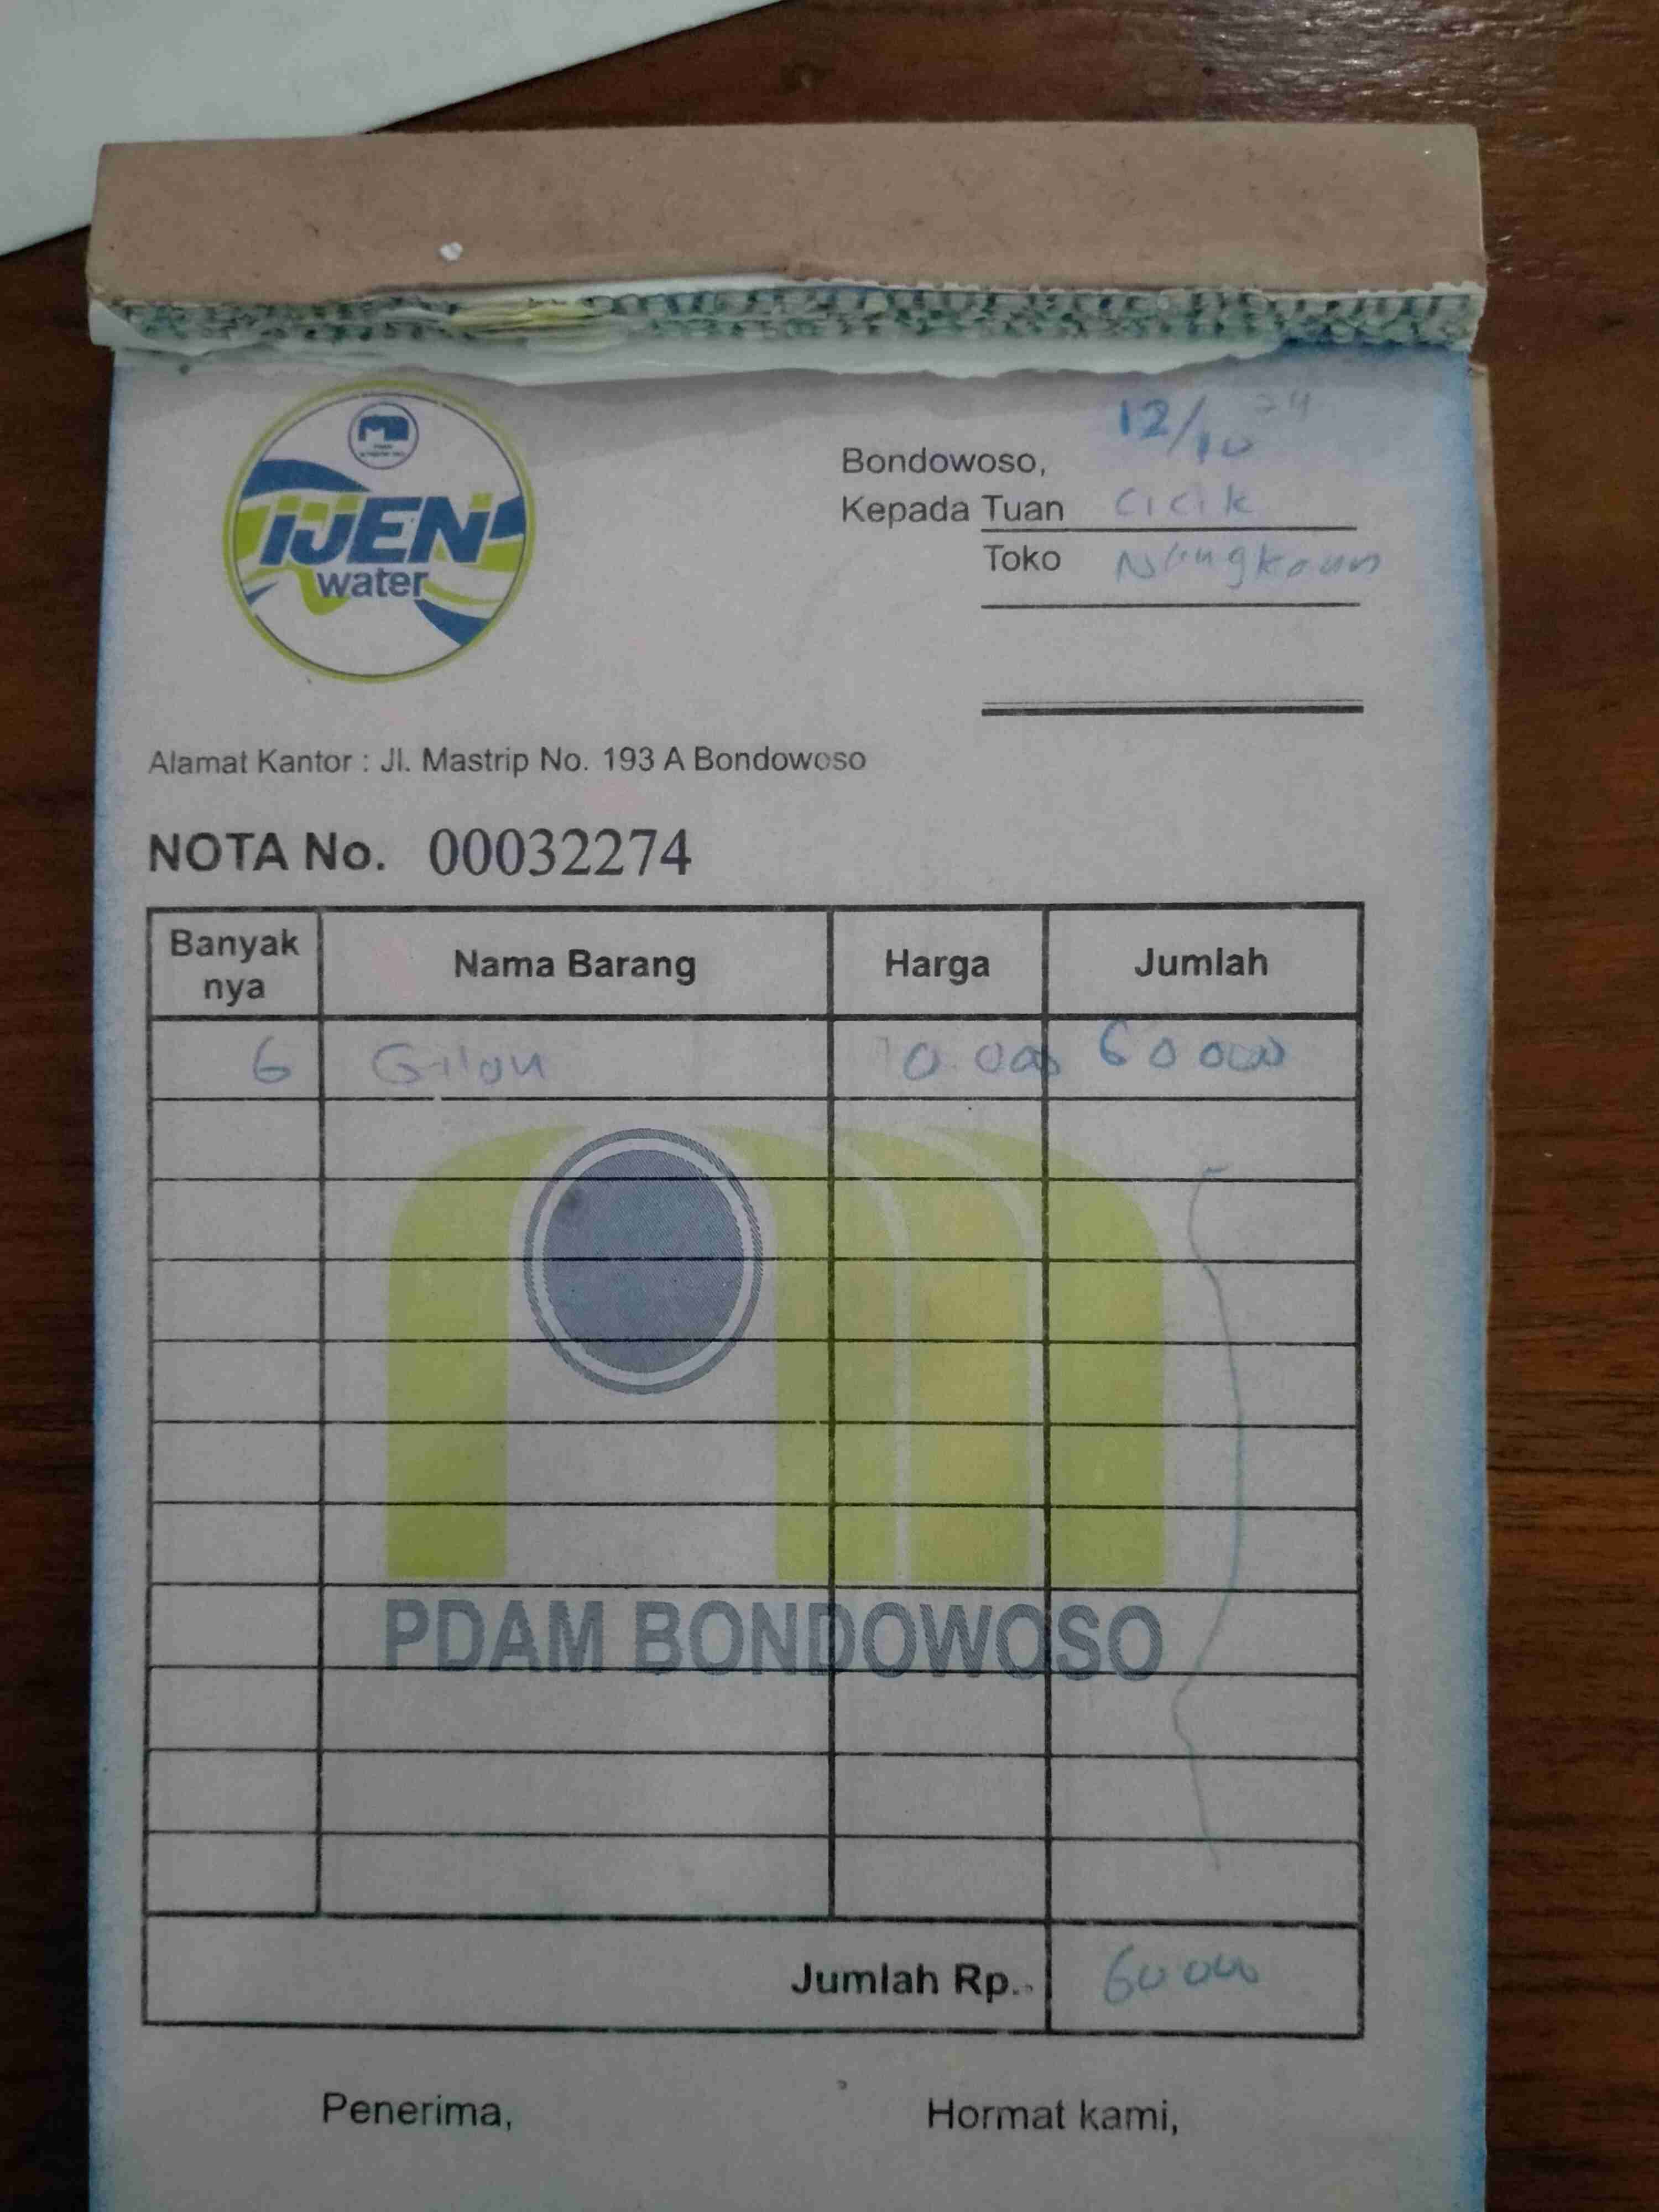 IJEN
water
Bondowoso, 12/10 24
Kepada Tuan Cicik
Toko
Alamat Kantor : Jl. Mastrip No. 193 A Bondowoso
NOTA No. 00032274
Banyak nya Nama Barang Harga Jumlah
6 Gilon 10.000 60 000
PDAM BONDOWOSO
Jumlah Rp. 60 000
Penerima, Hormat kami,